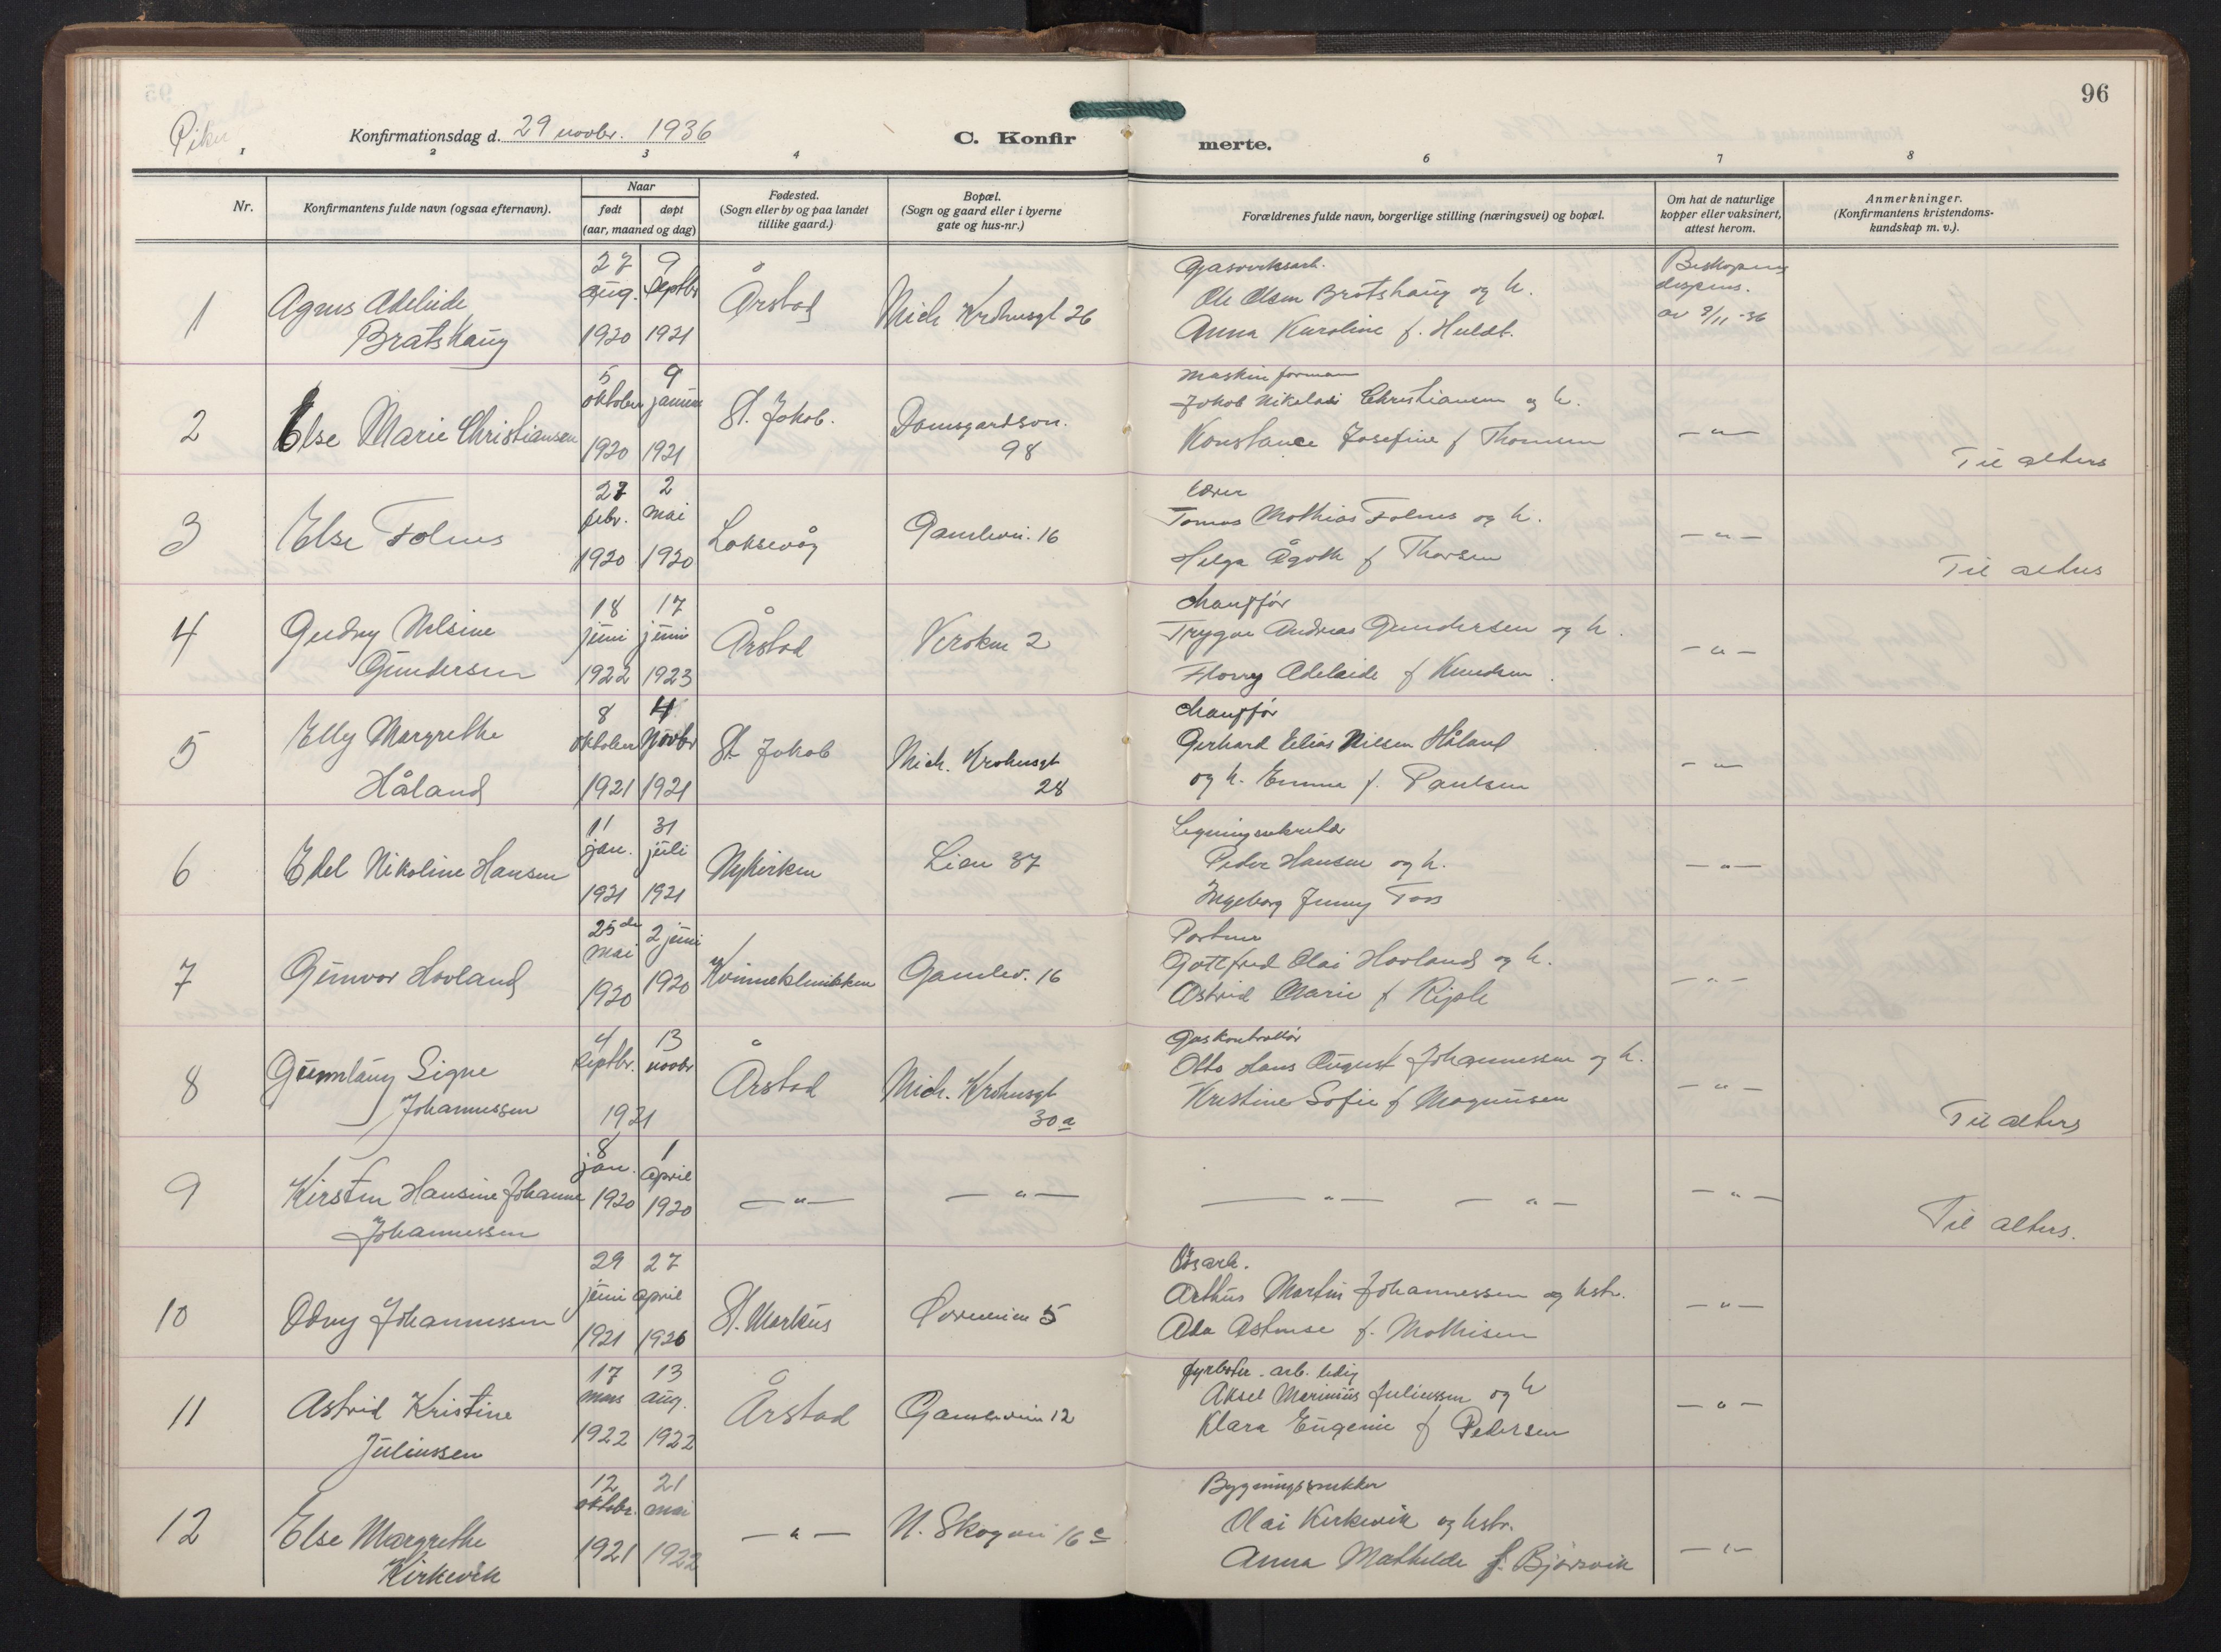 96
Piker
Konfirmationsdag d. 29 novbr. 1936
C. Konfir
merte.
1 2 3 4 6 7 8
Nr.
Konfirmantens fulde navn (ogsaa efternavn).
Naar
født døpt
(aar, maaned og dag)
Fødested.
(Sogn eller by og paa landet
tillike gaard.)
Bopæl.
(Sogn og gaard eller i byerne
gate og hus-nr.)
Forældrenes fulde navn, borgerlige stilling (næringsvei) og bopæl.
Om hat de naturlige
kopper eller vaksinert,
attest herom.
Anmerkninger.
(Konfirmantens kristendoms-
kundskap m. v.).
1
Agnes Adelaide
Bratshaug
27 aug. 1920
9 septbr 1921
Årstad
Mich Krohnsgt 26
Gasverksarb.
Ole Olsen Bratshaug og h.
Anna Karoline f. Huldt.
Biskopens
dispens.
av 9/11-36
2
Else Marie Christiansen
5 oktober 1920
9 januar 1921
St. Jakob.
Damsgardsvn.
98
Maskinformann
Jakob Nikolai Christiansen og h.
Konstance Josefine f Thomsen
— " —
Til alters
3
Else Folnes
27 febr. 1920
2 mai 1920
Laksevåg
Gamlevei. 16
lærer
Tomas Mathias Folnes og h.
Helga Ågoth f Thorsen
— " —
Til alters
4
Gudny Nilsine
Gundersen
18 juni 1922
17 juni 1923
Årstad
2
chauffør
Trygve Andreas Gundersen og h.
Florry Adelaide f Knudsen.
— " —
5
Elly Margrethe
Håland
8 oktober 1921
4 Novbr 1921
St. Jakob
Mich. Krohnsgt
28
chauffør
Gerhard Elias Nilsen Håland
og h. Emma f. Paulsen
— " —
6
Edel Nikoline Hansen
11 jan. 1921
31 juli 1921
Nykirken
Lien 37
Ligningssekretær
Peder Hansen og h.
Ingeborg Jenny Foss
— " —
7
Gunvor Hovland
25de mai 1920
2 juni 1920
Kvinneklinikken
Gamlev. 16
Portner
Gottfred Olai Hovland og h.
Astrid Marie f
— " —
8
Gunnlaug Signe
Johannessen
4 septbr. 13 novbr
1921
Årstad
Mich. Krohnsgt
30a
Gaskontrollør
Otto Hans August Johannessen og h.
Kristine Sofie f Magnusen
— " —
Til alters
9
Kirsten Hansine Johanne
Johannessen
8 jan. 1920
1 april 1920
— " —
— " —
— " — — " —
— " —
Til alters.
10
Odny Johannessen
29 juni 1921
27 april 1926
St. Markus
5
Arthur Martin Johannessen og hstr.
f. Mathisen
— " —
11
Astrid Kristine
Juliussen
17 mars 1922
13 aug. 1922
Årstad
Gamleveien 12
fyrbøter - arb. ledig
Aksel Marinius Juliussen og h
Klara Eugenie f Pedersen
— " —
12
Else Margrethe
Kirkevik
12 oktobr. 1921
21 mai 1922
— " —
N. Skogvei 16c
Bygningssnekker
Olai Kirkevik og hstr.
Anna Mathilde f. Bjørsvik
— " —